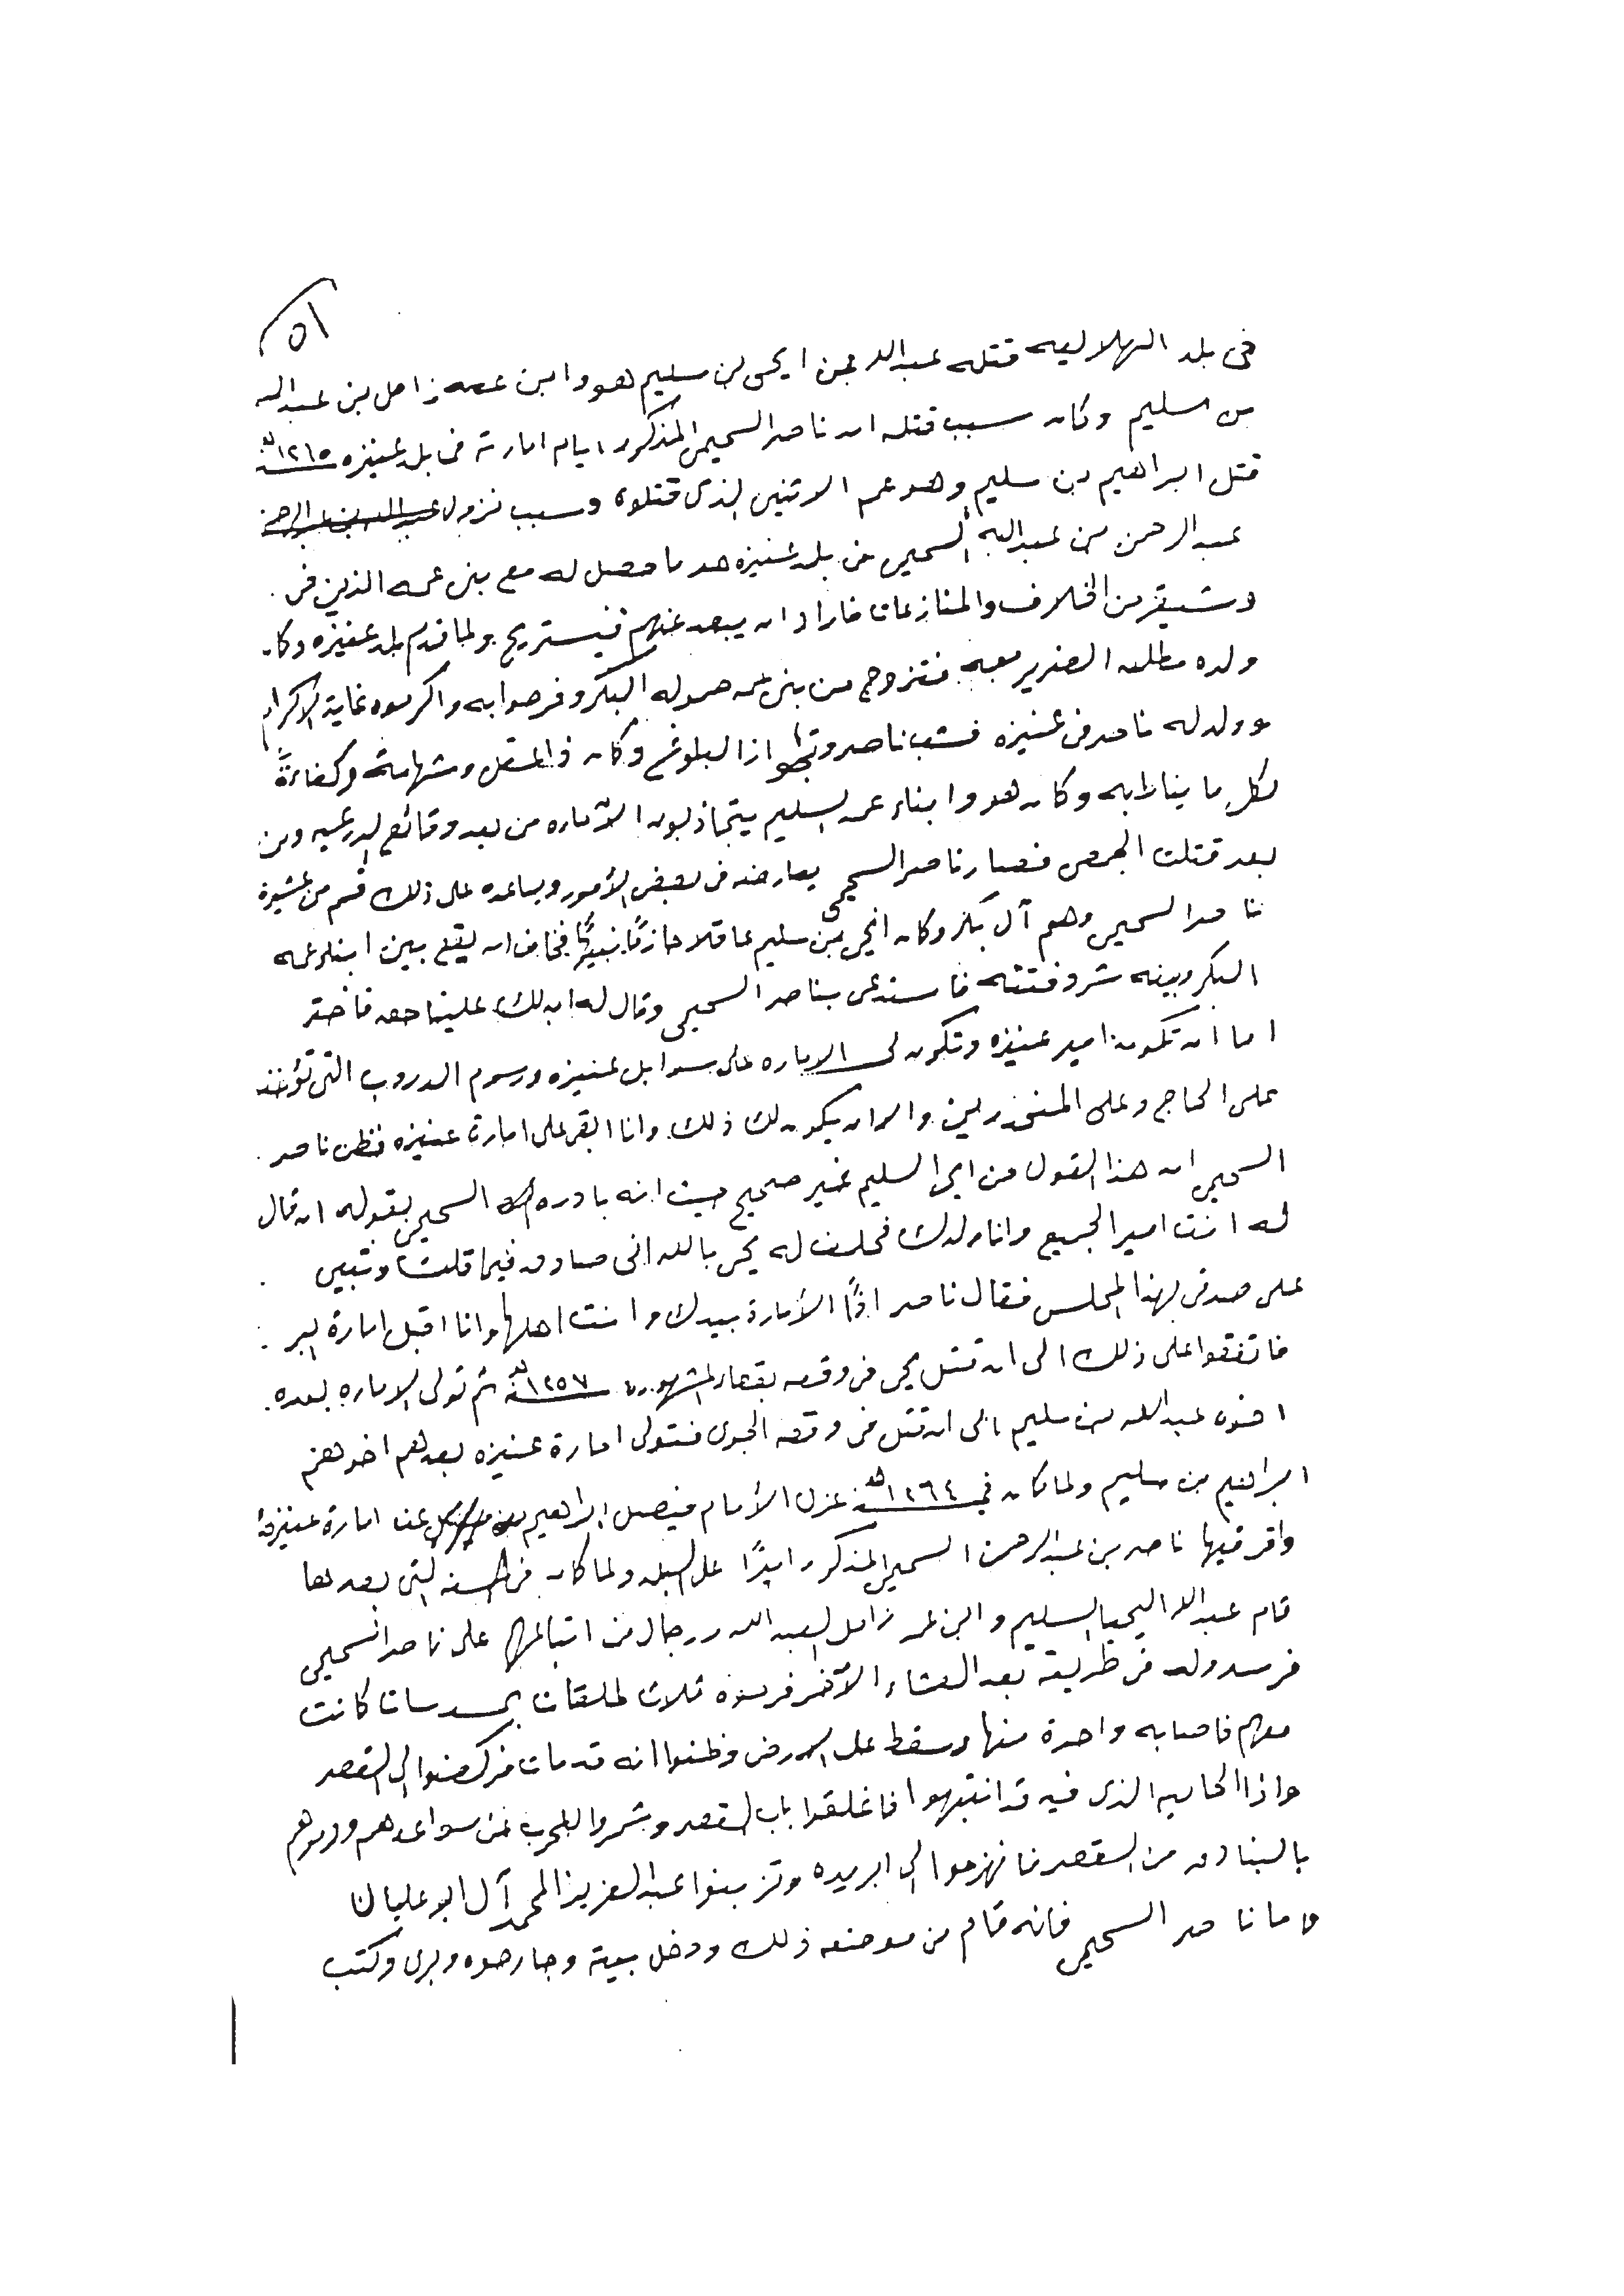 ٥١
في بلد الهلاليه قتله عبدالله بن يحيى بن سليم هو وابن عمه زامل بن عبدالله
بن سليم وكان سبب قتله ان ناصر السحيمي المذكور ايام امارته في بلد عنيزه ١٢٦٥هـ
قتل ابراهيم بن سليم وهو عم الاثنين الذي قتلوه وسبب نزول
عبدالرحمن بن عبدالله السحيمي في بلد عنيزه هو ما حصل له مع بني عمه الذين في
وشيقر من الخلاف والمنازعات فاراد ان يبعد عنهم فيستريح ولما قدم بلد عنيزه وكان
ولده مطلق الضرير معه فتزوج من بني عمه حموله البكر وفرحوا به واكرموه غاية الاكرام
وولد له ناصر في عنيزه فشب ناصر البلوغ وكان ذا عقل وشهامة وكفاءة
لكل ما يناط به وكان هو وابناء عمه السليم يتجاذبون الأماره من بعد وقائع الدرعيه ومن
بعد قتلت الجمعي فصار ناصر السحيمي يعارضه في بعض الأمور ويساعده على ذلك قسم من عشيرة
ناصر السحيمي وهم آل بكر وكان يحيى بن سليم عاقلا حازمًا فخاف ان يقع بين ابناء عمه
البكر وبينه شر وفتنه فاستدعى بناصر السحيمي وقال له ان لك علينا حق فاختر
اما ان تكون امير عنيزه وتكون لي الاماره على سوابل عنيزه ورسوم الدروب التي تؤخذ
على الحاج وعلى المنحدرين والا ان يكون لك ذلك وانا ابقى على امارة عنيزه فظن ناصر
السحيمي ان هذا القول من يحيى السليم غير صحيح حيث انه بادره السحيمي بقوله ان قال
له انت امير الجميع وانا ولدك فحلف له يحيى بالله اني صادق فيما قلت وتبين
على صدقي بهذا المجلس فقال ناصر اذًا الأمارة بيدك وانت اهلها وانا اقبل امارة البر
فاتفقوا على ذلك الى ان قتل يحيى في وقعه بقعاء المشهوره ١٢٥٧هـ ثم تولى الاماره بعده
اخوه عبدالله بن سليم الى ان قتل في وقعه الجوي فتولى امارة عنيزه بعدهم اخوهم
ابراهيم بن سليم ولما كان في ١٢٦٤هـ عزل الأمام فيصل ابراهيم بن عن امارة عنيزه
واقر فيها ناصر بن عبدالرحمن السحيمي المذكور اميرًا على البلد ولما كان في السنه التي بعدها
قام عبدالله اليحيا السليم وابن عمه زامل العبدالله ورجال من اتباعهم على ناصر السحيمي
فرصدوله في طريقه بعد العشاء الآخر فرموه ثلاث طلقات بمسدسات كانت
معهم فاصابه واحدة منها وسقط على الارض وظنوا انه قد مات فركضوا الى القصر
واذا الحاميه الذي فيه قد انتبهوا فاغلقوا باب القصر وشمروا للحرب عن سواعدهم ورموهم
بالبنادق من القصر فانهزموا الى ابريده وتزبنوا عبدالعزيز المحمد آل ابوعليان
واما ناصر السحيمي فانه قام من موضعه ذلك ودخل بيته وجارحوه وبرى وكتب